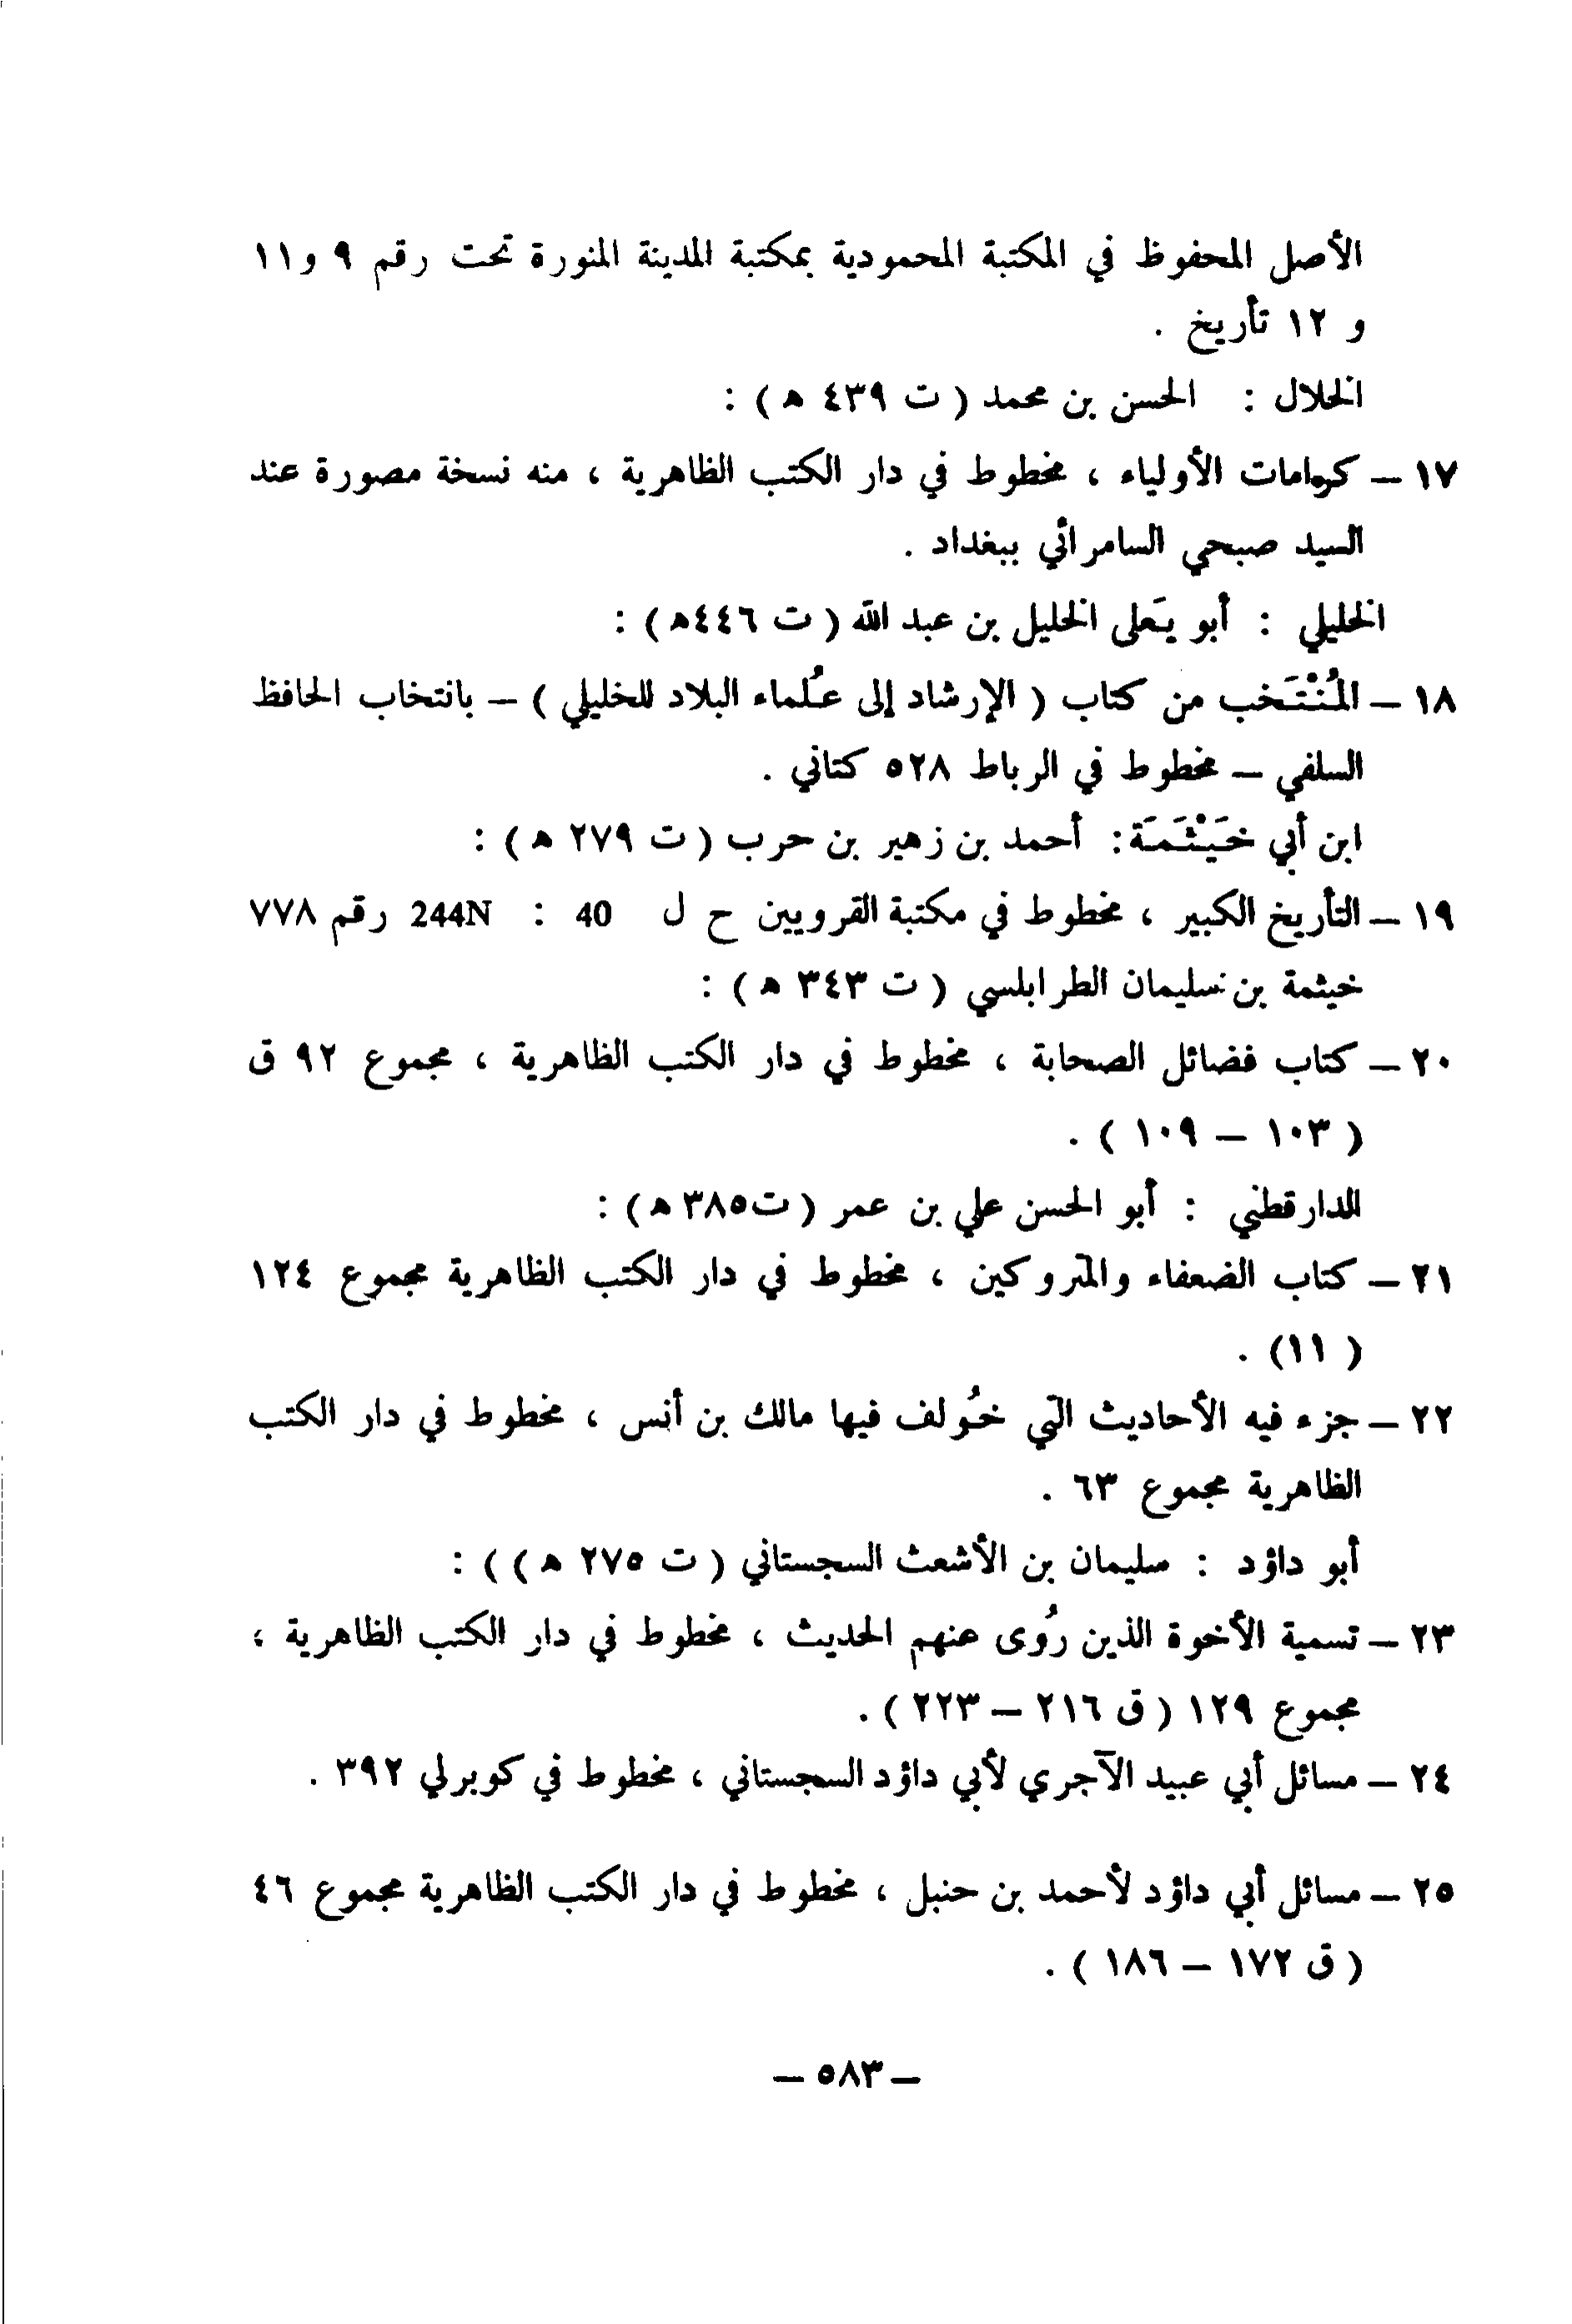 الأصل المحفوظ في المكتبة المحمودية بمكتبة المدينة المنورة تحت رقم ٩ و١١
و ١٢ تأريخ .
الخلال : الحسن بن محمد ( ت ٤٣٩ هـ ) :
١٧ – كرامات الأولياء ، مخطوط في دار الكتب الظاهرية ، منه نسخة مصورة عند
السيد صبحي السامرائي ببغداد .
الخليلي : أبو يَعلى الخليل بن عبد الله ( ت ٤٤٦هـ ) :
١٨ – المُنْتَخَب من كتاب ( الإرشاد إلى عُلماء البلاد للخليلي ) – بانتخاب الحافظ
السلفي – مخطوط في الرباط ٥٢٨ كتاني .
ابن أبي خَيْثَمَة : أحمد بن زهير بن حرب ( ت ٢٧٩ هـ ) :
١٩ – التأريخ الكبير ، مخطوط في مكتبة القرويين ح ل 40 : 244N رقم ٧٧٨
خيثمة بن سليمان الطرابلسي ( ت ٣٤٣ هـ ) :
٢٠ – كتاب فضائل الصحابة ، مخطوط في دار الكتب الظاهرية ، مجموع ٩٢ ق
( ١٠٣ – ١٠٩ ) .
الدارقطني : أبو الحسن علي بن عمر ( ت٣٨٥ هـ ) :
٢١ – كتاب الضعفاء والمتروكين ، مخطوط في دار الكتب الظاهرية مجموع ١٢٤
( ١١) .
٢٢ – جزء فيه الأحاديث التي خُولف فيها مالك بن أنس ، مخطوط في دار الكتب
الظاهرية مجموع ٦٣ .
أبو داؤد : سليمان بن الأشعث السجستاني ( ت ٢٧٥ هـ ) ) :
٢٣ – تسمية الأخوة الذين رُوى عنهم الحديث ، مخطوط في دار الكتب الظاهرية ،
مجموع ١٢٩ ( ق ٢١٦ – ٢٢٣ ) .
٢٤ – مسائل أبي عبيد الآجري لأبي داؤد السجستاني ، مخطوط في كوبرلي ٣٩٢ .
٢٥ – مسائل أبي داؤد لأحمد بن حنبل ، مخطوط في دار الكتب الظاهرية مجموع ٤٦
( ق ١٧٢ – ١٨٦ ) .
– ٥٨٣ –